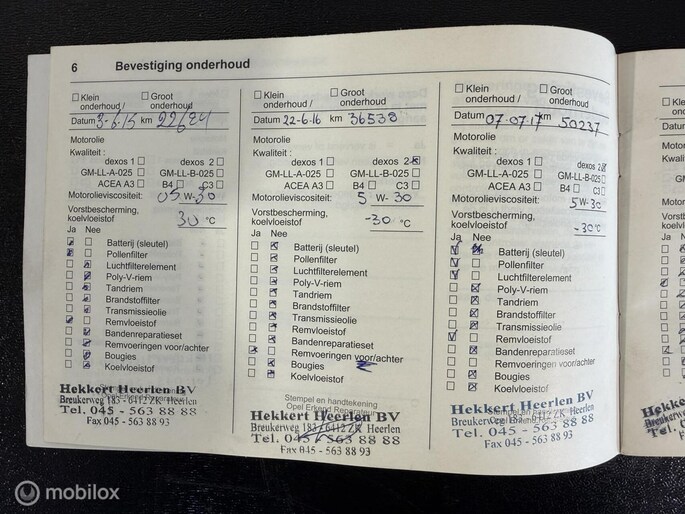 6 Bevestiging onderhoud
Klein onderhoud / Groot onderhoud
Datum 3-6-15 km
Motorolie
Kwaliteit :
dexos 1 dexos 2
GM-LL-A-025 GM-LL-B-025
ACEA A3 B4 C3
Motorolieviscositeit: 05 W-30
Vorstbescherming, koelvloeistof 30 °C
Ja Nee
Batterij (sleutel)
Pollenfilter
Luchtfilterelement
Poly-V-riem
Tandriem
Brandstoffilter
Transmissieolie
Remvloeistof
Bandenreparatieset
Remvoeringen voor/achter
Bougies
Koelvloeistof
Hekkert Heerlen BV
Breukerweg 183 - 6412 ZK Heerlen
Tel. 045 - 563 88 88
Fax 045 - 563 88 93
Klein onderhoud / Groot onderhoud
Datum 22-6-16 km 36538
Motorolie
Kwaliteit :
dexos 1 dexos 2
GM-LL-A-025 GM-LL-B-025
ACEA A3 B4 C3
Motorolieviscositeit: 5 W- 30
Vorstbescherming, koelvloeistof -30 °C
Ja Nee
Batterij (sleutel)
Pollenfilter
Luchtfilterelement
Poly-V-riem
Tandriem
Brandstoffilter
Transmissieolie
Remvloeistof
Bandenreparatieset
Remvoeringen voor/achter
Bougies
Koelvloeistof
Stempel en handtekening
Opel Erkend Reparateur
Hekkert Heerlen BV
Breukerweg 183 / 6412 ZK Heerlen
Tel. 045 - 563 88 88
Fax 045 - 563 88 93
Klein onderhoud / Groot onderhoud
Datum 07-07-17 km 50237
Motorolie
Kwaliteit :
dexos 1 dexos 2
GM-LL-A-025 GM-LL-B-025
ACEA A3 B4 C3
Motorolieviscositeit: 5W-30
Vorstbescherming, koelvloeistof -30°C
Ja Nee
Batterij (sleutel)
Pollenfilter
Luchtfilterelement
Poly-V-riem
Tandriem
Brandstoffilter
Transmissieolie
Remvloeistof
Bandenreparatieset
Remvoeringen voor/achter
Bougies
Koelvloeistof
Hekkert Heerlen BV
Breukerweg 183 - 6412 ZK Heerlen
Tel. 045 - 563 88 88
Fax 045 - 563 88 93
mobilox